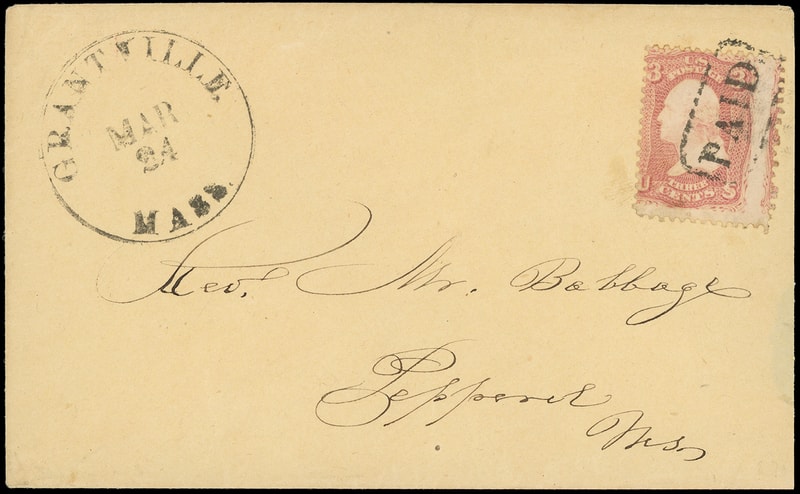 GRANTVILLE.
MAR
24
MASS.
3 U.S. 3
POSTAGE
PAID
THREE
U CENTS S
Rev. Mr. Babbage
Pepperel
Mss